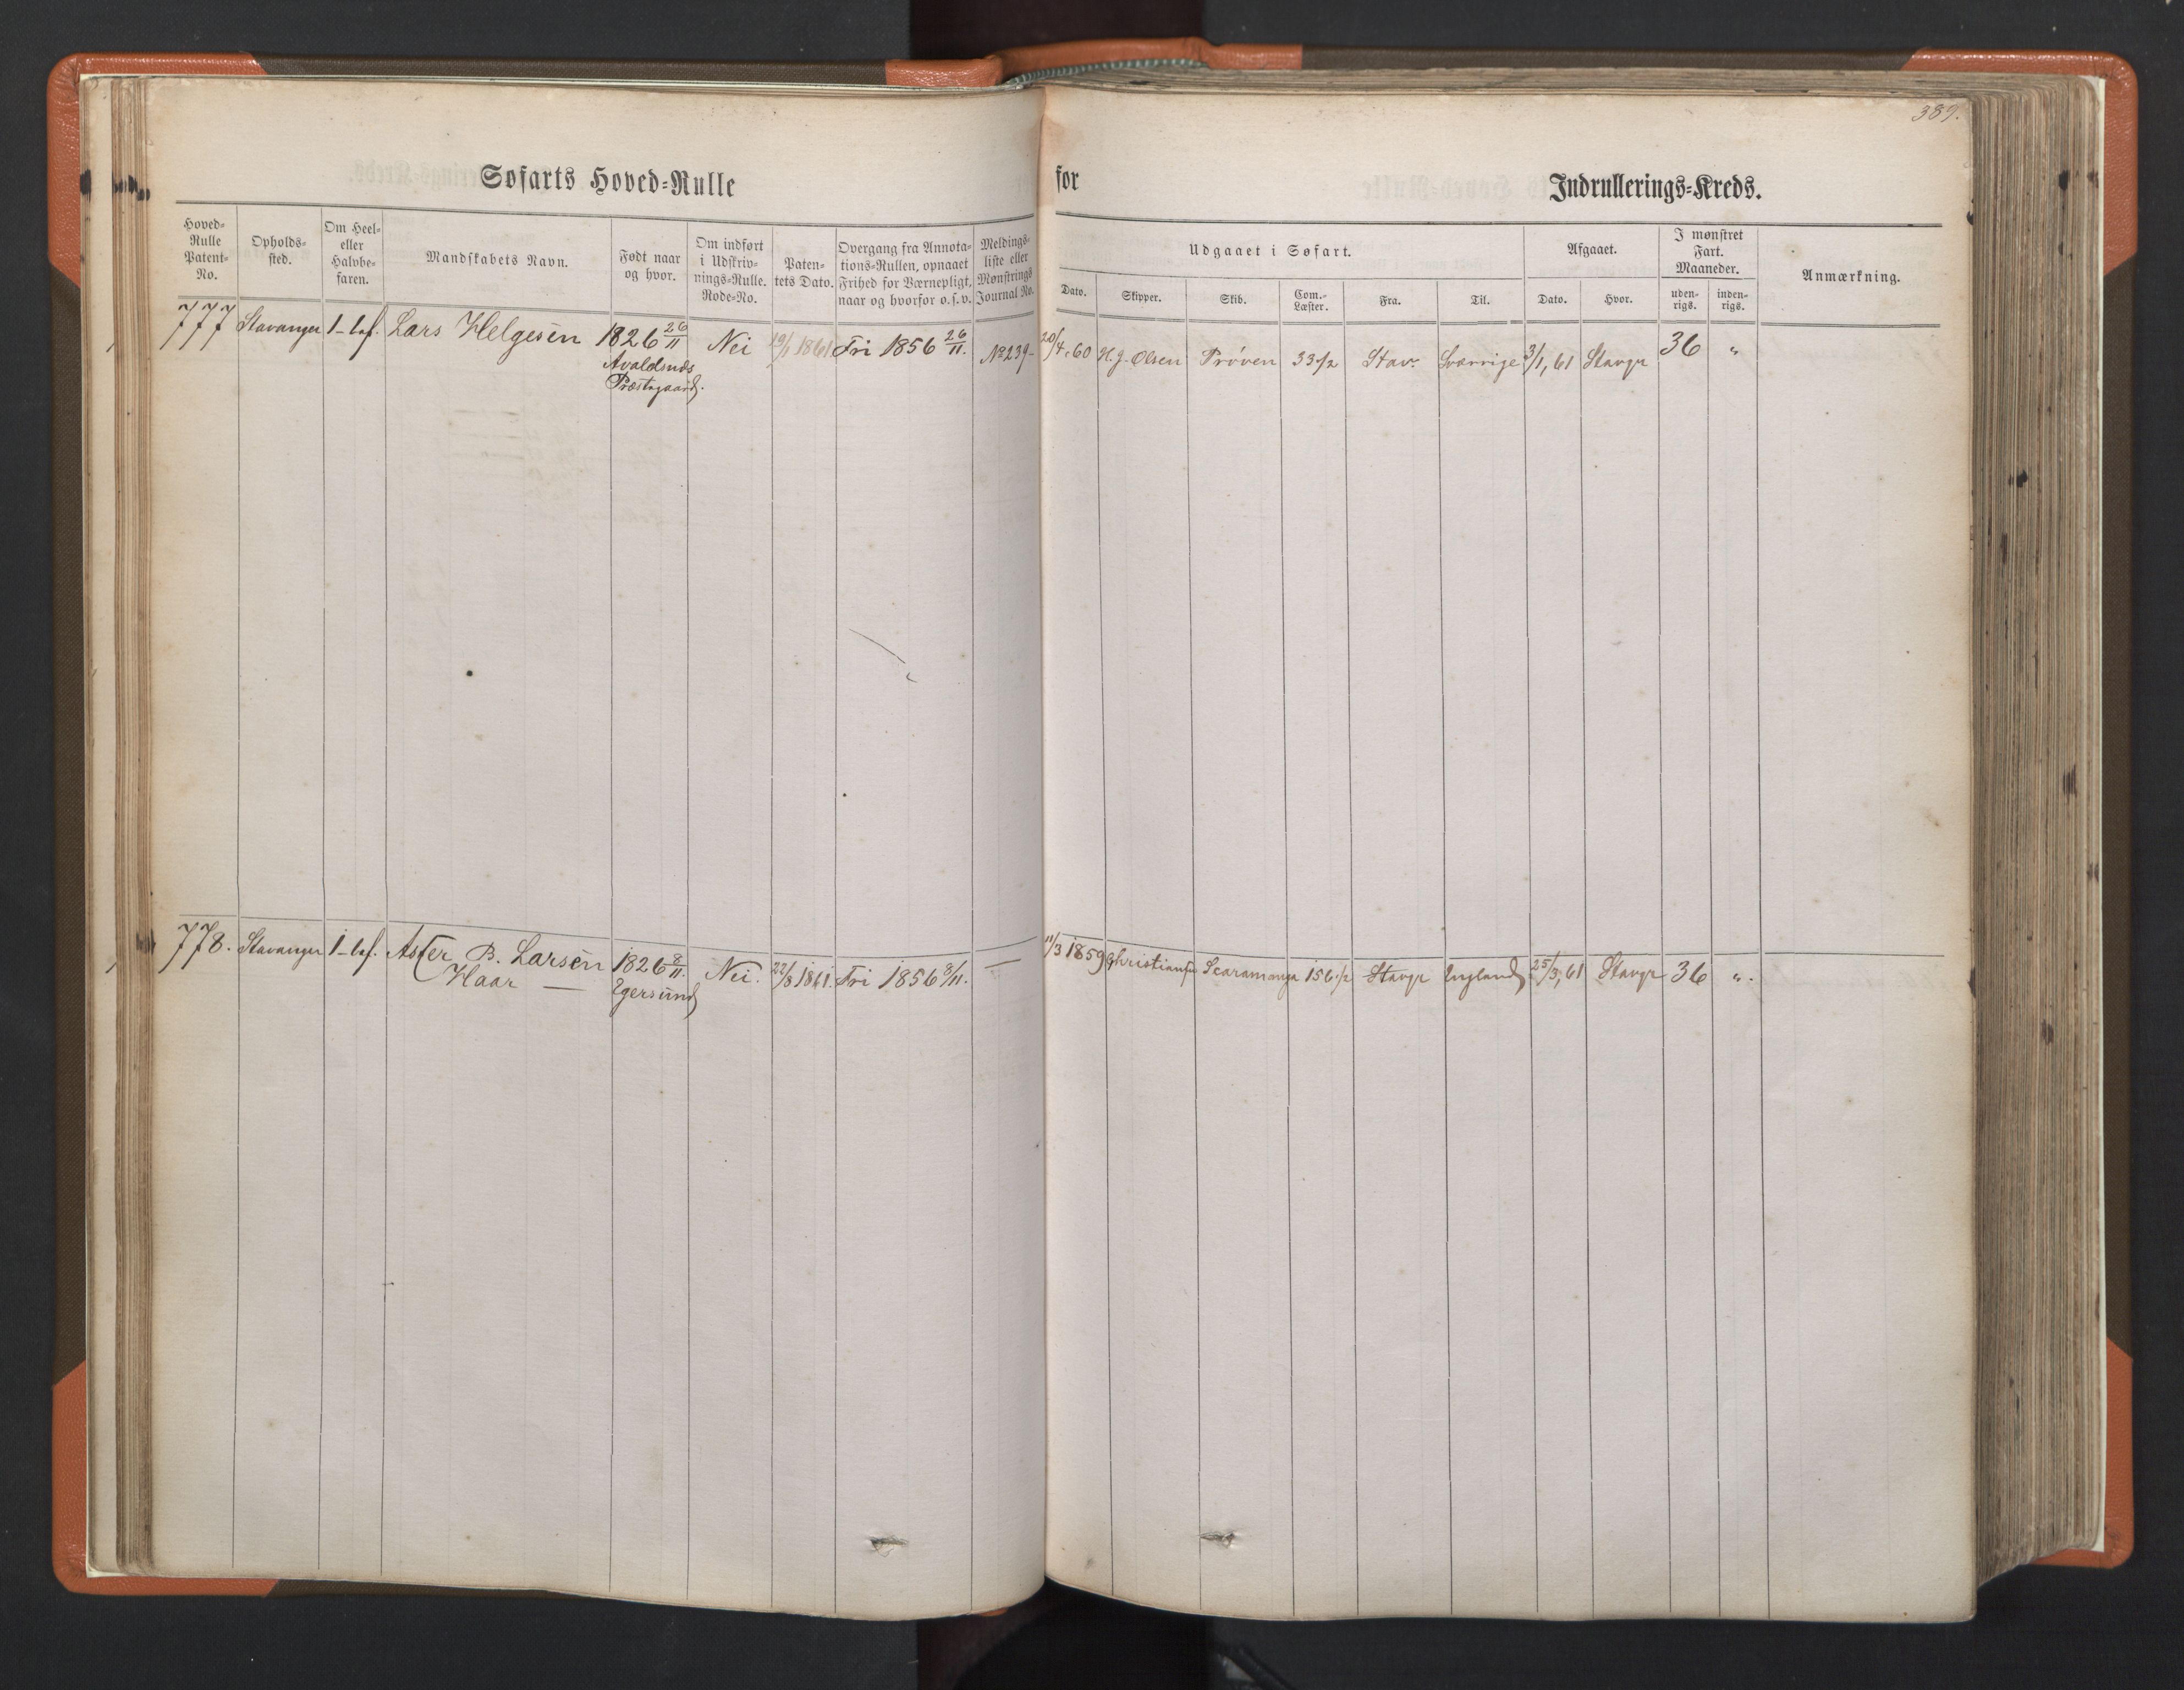 389.
Søfarts Hoved-Rulle for Indrullerings-Kreds.
Hoved-Rulle Patent-No.
Opholds-sted.
Om Heel- eller Halvbe-faren.
Mandskabets Navn.
Født naar og hvor.
Om indført i Udskriv-nings-Rulle. Rode-No.
Paten-tets Dato.
Overgang fra Annota-tions-Rullen, opnaaet Frihed for Værnepligt, naar og hvorfor o.s.v.
Meldings-liste eller Mønstrings Journal No.
Udgaaet i Søfart.
Dato.
Skipper.
Skib.
Com.-Læster.
Fra.
Til.
Afgaaet.
Dato.
Hvor.
I mønstret Fart. Maaneder.
uden-rigs.
inden-rigs.
Anmærkning.
777 Stavanger 1_bef. Lars Helgesen 1826 26/11 Nei 19/1 1861 Fri 1856 26/11. No 239- 20/4.60 H.J. Olsen Prøven 33 1/2 Stavr Sverrige 3/1, 61 Stavgr 36 "
Avaldsnds
Præstegaard.
778. Stavanger 1_bef. B. Larsen 1826 8/11. Nei. 22/8 1861. Fri 1856 8/11. — 11/3 1859 Scaramanga 156 1/2 Stavgr England 25/3, 61 Stavgr 36 ".
Haar —
Egersund